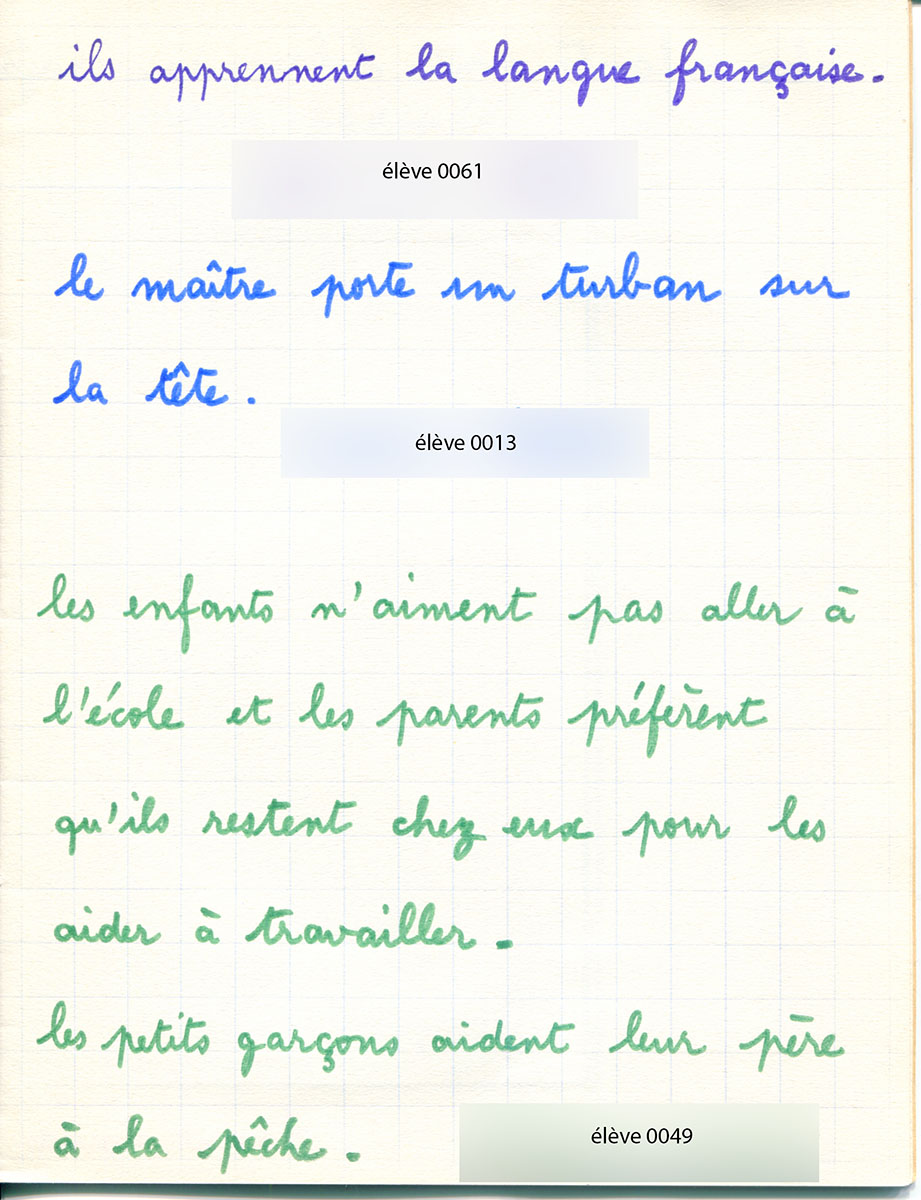 ils apprennent la langue française.
élève 0061
le maître porte un turban sur
la tête.
élève 0013
les enfants n'aiment pas aller à
l'école et les parents préfèrent
qu'ils restent chez eux pour les
aider à travailler.
les petits garçons aident leur père
à la pêche.
élève 0049